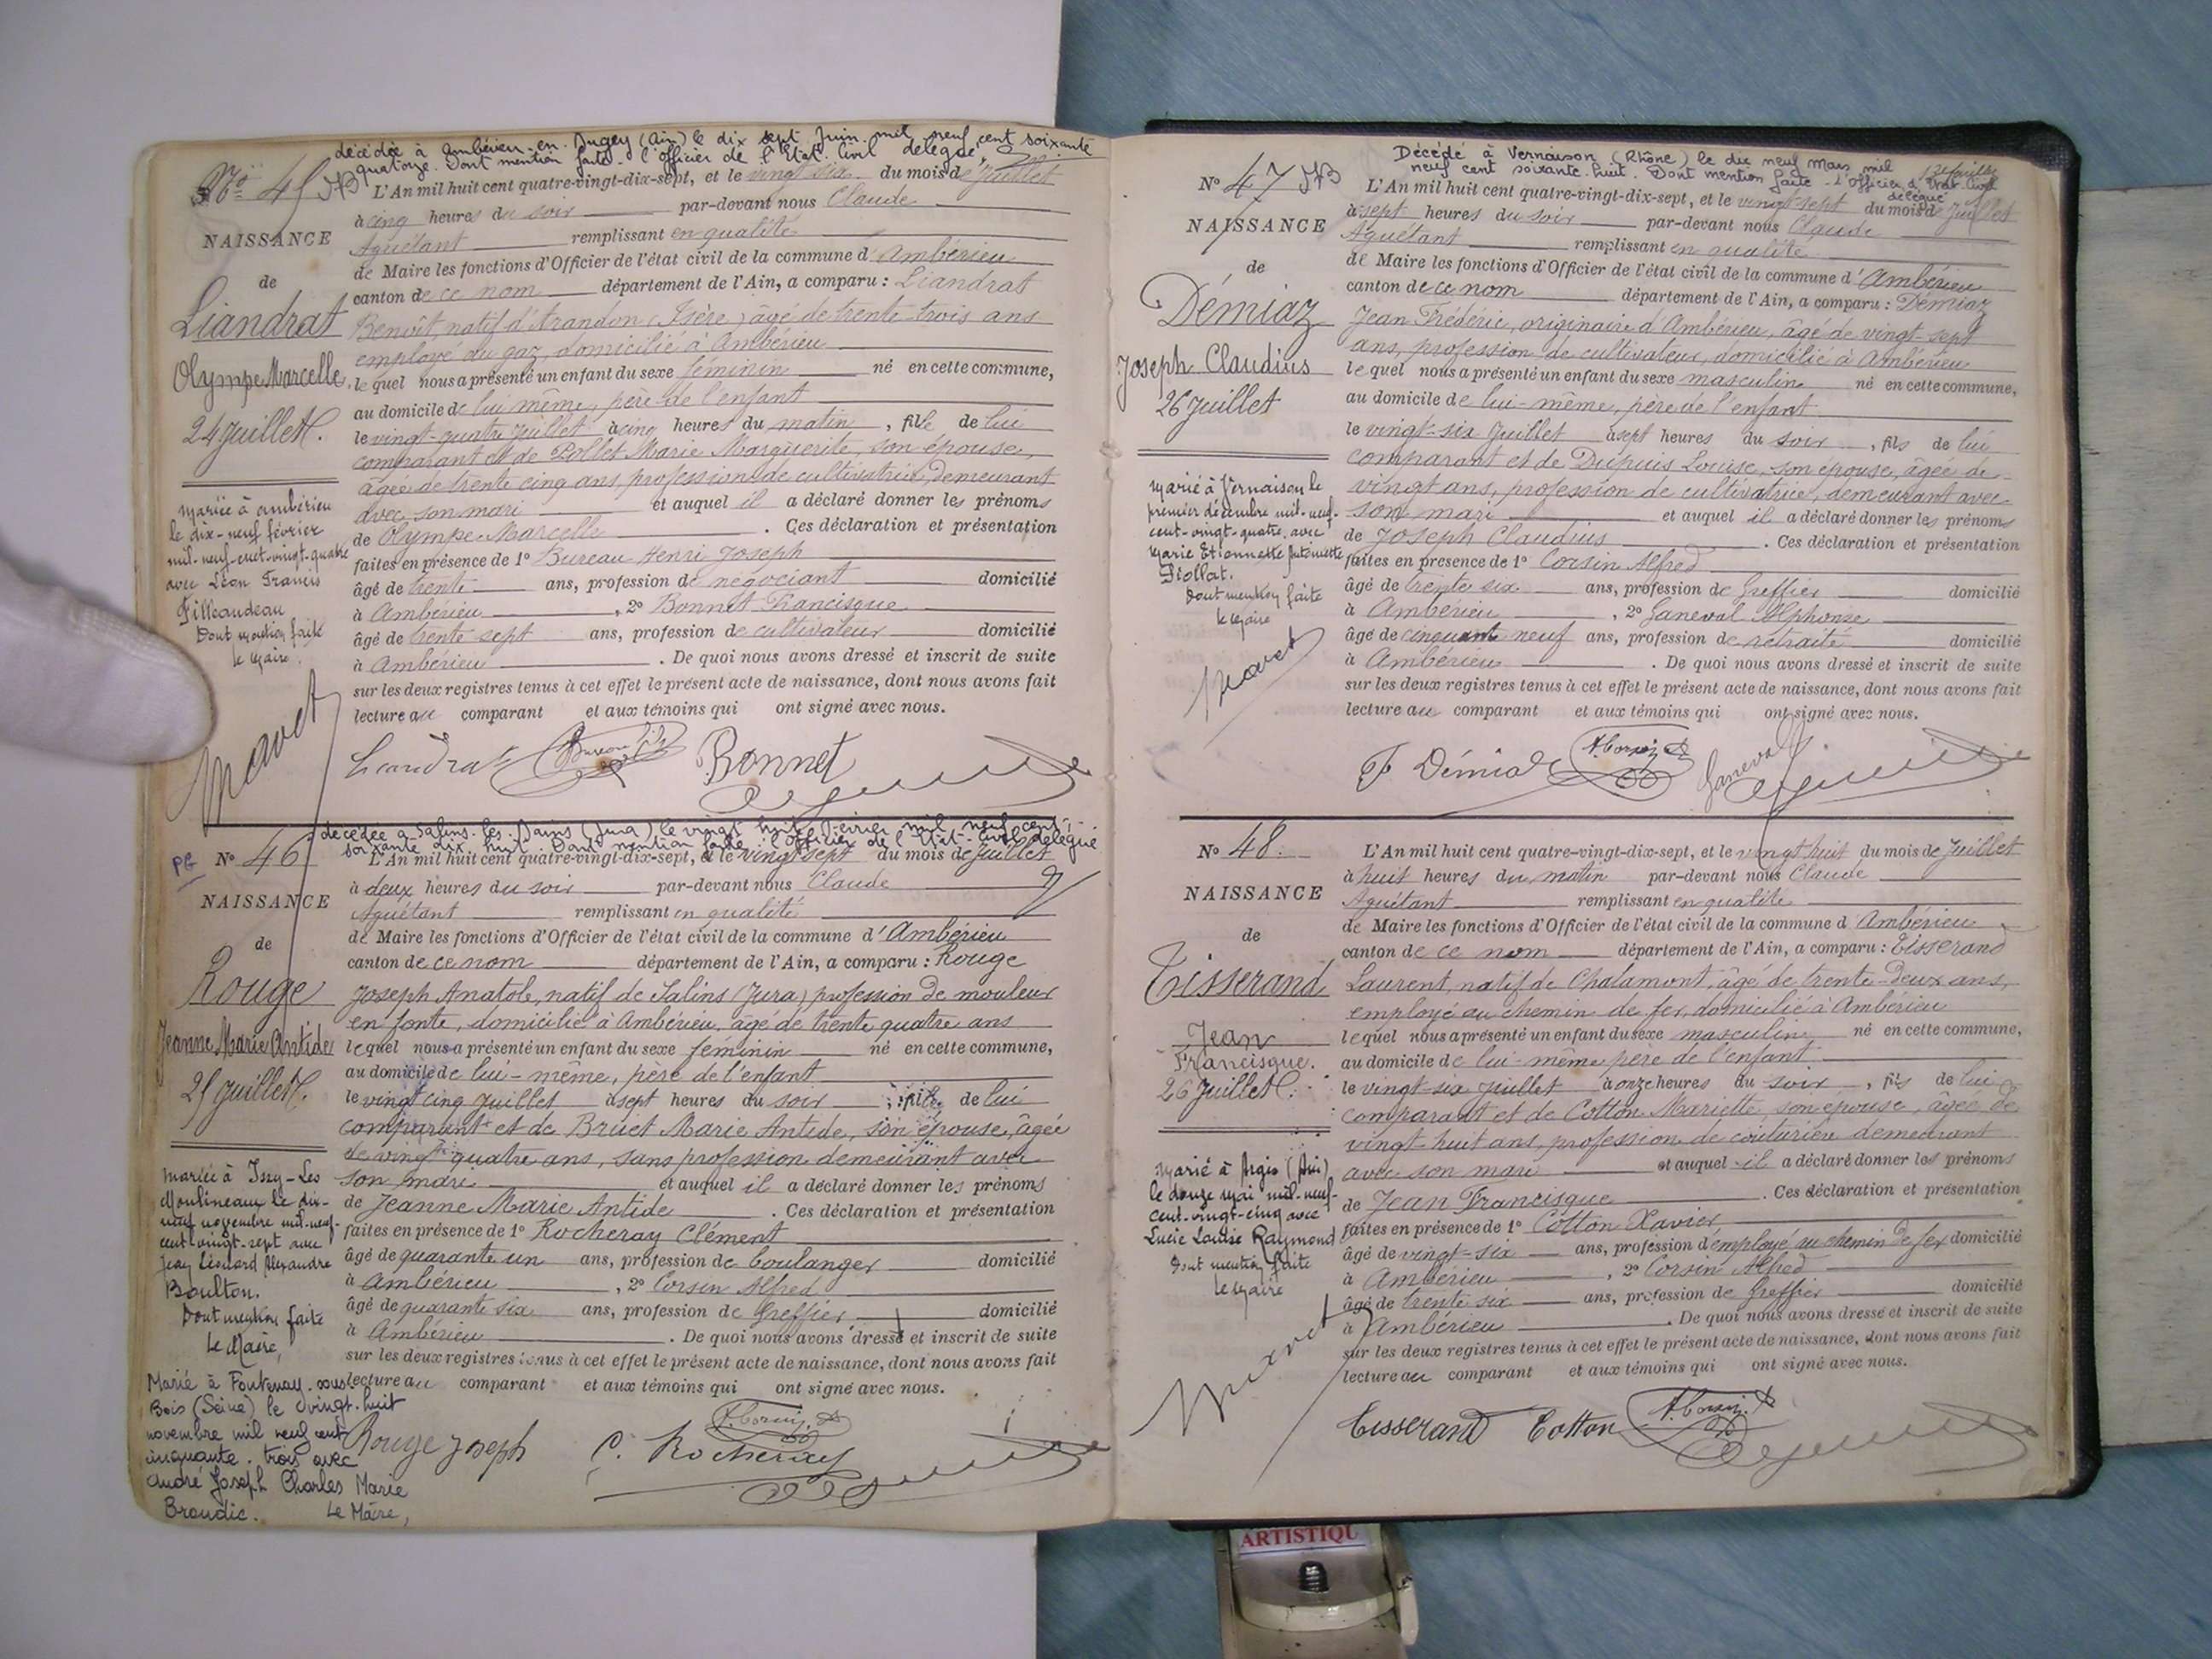 décédée à Ambérieu-en-Bugey (Ain) le dix sept Juin mil neuf cent soixante
quatorze. Dont mention faite. l'officier de l'Etat Civil délégué,
No 45
L'An mil huit cent quatre-vingt-dix-sept, et le vingt six du mois de Juillet
à cinq heures du soir par-devant nous Claude
Aguétant remplissant en qualité
de Maire les fonctions d'Officier de l'état civil de la commune d'Ambérieu
canton de ce nom département de l'Ain, a comparu : Liandrat
Benoît, natif d'Arandon (Isère) âgé de trente-trois ans
employé du gaz, domicilié à Ambérieu
lequel nous a présenté un enfant du sexe féminin né en cette commune,
au domicile de lui même, père de l'enfant
le vingt-quatre Juillet à cinq heures du matin, fille de lui
comparant et de Pollet Marie Marguerite, son épouse,
âgée de trente cinq ans, profession de cultivatrice, demeurant
avec son mari et auquel il a déclaré donner les prénoms
de Olympe Marcelle. Ces déclaration et présentation
faites en présence de 1° Bureau Henri Joseph
âgé de trente ans, profession de négociant domicilié
à Ambérieu, 2° Bonnet Francisque
âgé de trente sept ans, profession de cultivateur domicilié
à Ambérieu. De quoi nous avons dressé et inscrit de suite
sur les deux registres tenus à cet effet le présent acte de naissance, dont nous avons fait
lecture au comparant et aux témoins qui ont signé avec nous.
NAISSANCE
de
Liandrat
Olympe Marcelle
24 Juillet
Mariée à Ambérieu
le dix-neuf février
mil-neuf-cent-vingt-quatre
avec Léon Francis
Filleaudeau
Dont mention faite
le Maire
Liandrat Bureau Bonnet
décédée à Salins-les-Bains (Jura) le vingt huit Février mil neuf cent
soixante dix huit. Dont mention faite. l'officier de l'Etat-Civil délégué
PG
No 46
L'An mil huit cent quatre-vingt-dix-sept, et le vingt sept du mois de Juillet
à deux heures du soir par-devant nous Claude
Aguétant remplissant en qualité
de Maire les fonctions d'Officier de l'état civil de la commune d'Ambérieu
canton de ce nom département de l'Ain, a comparu : Rouge
Joseph Anatole, natif de Salins (Jura) profession de mouleur
en fonte, domicilié à Ambérieu, âgé de trente quatre ans
lequel nous a présenté un enfant du sexe féminin né en cette commune,
au domicile de lui-même, père de l'enfant
le vingt cinq Juillet à sept heures du soir, fille de lui
comparant et de Bruet Marie Antide, son épouse, âgée
de vingt quatre ans, sans profession demeurant avec
son mari et auquel il a déclaré donner les prénoms
de Jeanne Marie Antide. Ces déclaration et présentation
faites en présence de 1° Rocheray Clément
âgé de quarante un ans, profession de boulanger domicilié
à Ambérieu, 2° Corsin Alfred
âgé de quarante six ans, profession de Greffier domicilié
à Ambérieu. De quoi nous avons dressé et inscrit de suite
sur les deux registres tenus à cet effet le présent acte de naissance, dont nous avons fait
lecture au comparant et aux témoins qui ont signé avec nous.
NAISSANCE
de
Rouge
Jeanne Marie Antide
25 Juillet
Mariée à Issy-Les
Moulineaux le dix-
neuf novembre mil-neuf-
cent-vingt-sept avec
Jean Léonard Alexandre
Boulton.
Dont mention faite
Le Maire,
Marié à Fontenay-sous-
Bois (Seine) le vingt-huit
novembre mil neuf cent
cinquante-trois avec
André Joseph Charles Marie
Braudic.
Le Maire,
Rouge Joseph C. Rocheray A. Corsin
Décédé à Vernaison (Rhône) le dix neuf Mars mil
neuf cent soixante-huit. Dont mention faite - L'Officier d'Etat Civil
délégué
No 47
L'An mil huit cent quatre-vingt-dix-sept, et le vingt-sept du mois de Juillet
à sept heures du soir par-devant nous Claude
Aguétant remplissant en qualité
de Maire les fonctions d'Officier de l'état civil de la commune d'Ambérieu
canton de ce nom département de l'Ain, a comparu : Démiaz
Jean Frédéric, originaire d'Ambérieu, âgé de vingt-sept
ans, profession de cultivateur, domicilié à Ambérieu
lequel nous a présenté un enfant du sexe masculin né en cette commune,
au domicile de lui-même, père de l'enfant
le vingt-six Juillet à sept heures du soir, fils de lui
comparant et de Dupuis Louise, son épouse, âgée de
vingt ans, profession de cultivatrice, demeurant avec
son mari et auquel il a déclaré donner les prénoms
de Joseph Claudius. Ces déclaration et présentation
faites en présence de 1° Corsin Alfred
âgé de trente six ans, profession de Greffier domicilié
à Ambérieu, 2° Ganeval Alphonse
âgé de cinquante neuf ans, profession de retraité domicilié
à Ambérieu. De quoi nous avons dressé et inscrit de suite
sur les deux registres tenus à cet effet le présent acte de naissance, dont nous avons fait
lecture au comparant et aux témoins qui ont signé avec nous.
NAISSANCE
de
Démiaz
Joseph Claudius
26 Juillet
Marié à Vernaison le
premier décembre mil-neuf-
cent-vingt-quatre avec
Marie Etiennette Antoinette
Piollat.
Dont mention faite
le Maire
F Démiaz A. Corsin Ganeval
No 48.
L'An mil huit cent quatre-vingt-dix-sept, et le vingt huit du mois de Juillet
à huit heures du matin par-devant nous Claude
Aguétant remplissant en qualité
de Maire les fonctions d'Officier de l'état civil de la commune d'Ambérieu
canton de ce nom département de l'Ain, a comparu : Tisserand
Laurent, natif de Chalamont, âgé de trente-deux ans,
employé au chemin de fer, domicilié à Ambérieu
lequel nous a présenté un enfant du sexe masculin né en cette commune,
au domicile de lui-même père de l'enfant
le vingt-six Juillet à onze heures du soir, fils de lui
comparant et de Cotton Mariette, son épouse, âgée de
vingt-huit ans, profession de couturière demeurant
avec son mari et auquel il a déclaré donner les prénoms
de Jean Francisque. Ces déclaration et présentation
faites en présence de 1° Cotton Xavier,
âgé de vingt-six ans, profession d'employé au chemin de fer domicilié
à Ambérieu, 2° Corsin Alfred
âgé de trente six ans, profession de Greffier domicilié
à Ambérieu. De quoi nous avons dressé et inscrit de suite
sur les deux registres tenus à cet effet le présent acte de naissance, dont nous avons fait
lecture au comparant et aux témoins qui ont signé avec nous.
NAISSANCE
de
Tisserand
Jean
Francisque.
26 Juillet
Marié à Argis (Ain)
le douze mai mil-neuf-
cent-vingt-cinq avec
Lucie Louise Raymond
Dont mention faite
le Maire
Tisserand Cotton A. Corsin
ARTISTIQU